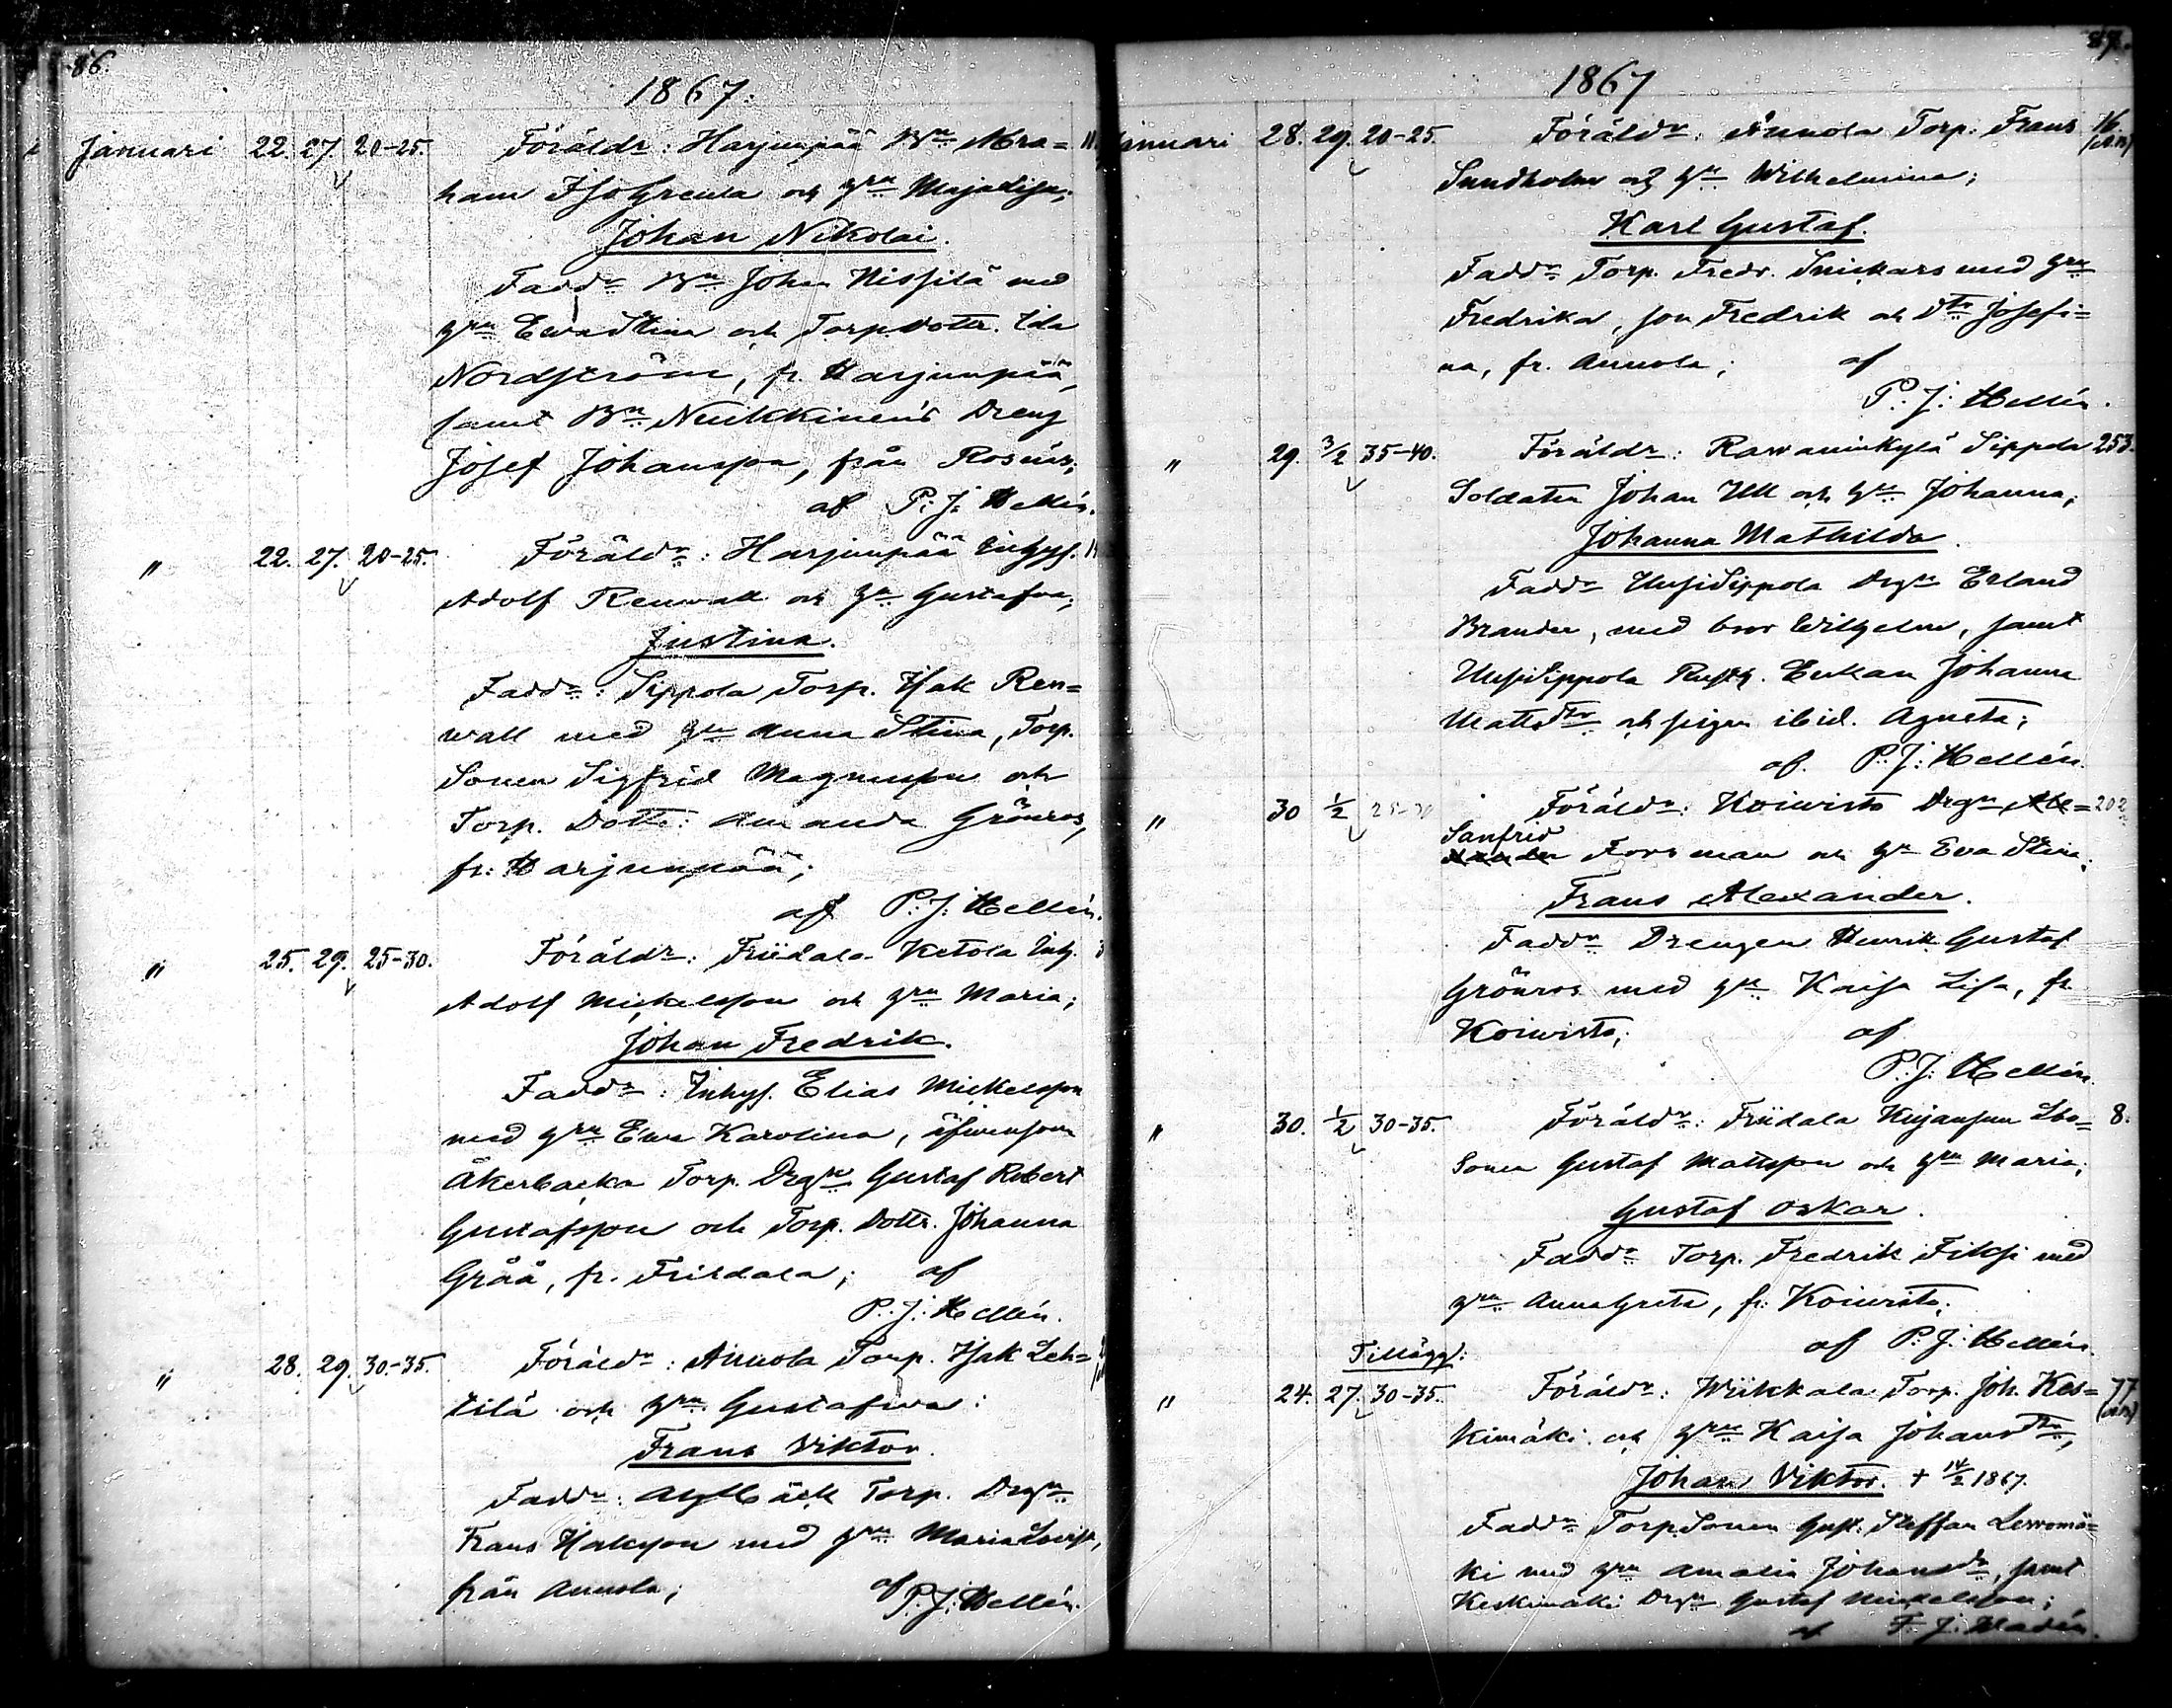 86.
1867.
Januari 22. 27. 20-25. Föräldr: Harjunpää Bn Abra=
ham IsoGreula och hn MajaLisa;
Johan Nikolai.
Faddr Bn Johan Hissilä med
hn EwaStina och Torp.dottr. Ida
Nordström, fr. Harjunpää,
samt Bn Nuikkinen's Dreng
Josef Johansson, från Rosnäs;
af P. J. Hellén.
" 22. 27. 20-25. Föräldr: Harjunpää Inhys.
Adolf Renwall och hn Gustafva;
Justina.
Faddr: Sippola Torp. Isak Ren=
wall med hn Anna Stina, Torp.
Sonen Sigfrid Magnusson och
Torp. Dottr: Amanda Grönros,
fr: Harjunpää;
af P. J. Hellén.
" 25. 29. 25-30. Föräldr: Friidala Ketola Inh.
Adolf Mickelsson och hn Maria;
Johan Fredrik.
Faddr: Inhys. Elias Mickelsson
med hn Ewa Karolina, äfvensom
Åkerbacka Torp. Drgn Gustaf Robert
Gustafsson och Torp. Dottr. Johanna
Gråå, fr. Friidala; af
P. J. Hellén.
" 28. 29. 30-35. Föräldr: Annola Torp. Isak Leh=
tilä och hn Gustafva:
Frans Viktor.
Faddr: Torp. Drgn
Frans med hn Maria Lovisa,
från Annola; af P. J. Hellén.
1867
Januari 28. 29. 20-25. Föräldr: Annola Torp. Frans 16.
Sundholm och hn Wilhelmina;
Karl Gustaf.
Faddr Torp. Fredr. Snickars med hn
Fredrika, son Fredrik och dtr Josefi=
na, fr. Annola; af
P. J. Hellén.
" 29. 3/2 35-40. Föräldr: Rawaninkylä Sippola 253.
Soldaten Johan Ull och hn Johanna;
Johanna Mathilda.
Faddr UusiSippola Drgn Erland
Brander, med bror Wilhelm, samt
UusiSippola Rusth. Enkan Johanna
Mattsdtr och pigan ibid. Agneta;
af. P. J. Hellén.
" 30 1/2 25-30 Föräldr: Koiwisto Drgn Ale= 202
Sanfrid
xander Forsman och hn Eva Stina;
Frans Alexander.
Faddr Drengen Henrik Gustaf
Grönros med hn Kaisa Lisa, fr.
Koiwisto; af
P. J. Hellén.
" 30. 1/2 30-35. Föräldr: Friidala Kujansuu Lbo= 8.
Sonen Gustaf Mattsson och hn Maria;
Gustaf Oskar.
Faddr Torp. Fredrik Fiksi med
hn AnnaGreta, fr: Koiwisto;
af P. J. Hellén.
Tillägg:
" 24. 27. 30-35. Föräldr: Wiikkala Torp. Joh. Kes= 77
kimäki och hn Kaisa Johansdtr,
Johan Viktor. + 14/2 1867.
Faddr TorpSonen Gust. Steffan Lewomä=
ki med hn Amalia Johansdr, samt
Keskimäki Drgn Gustaf Mickelsson;
af F. J.